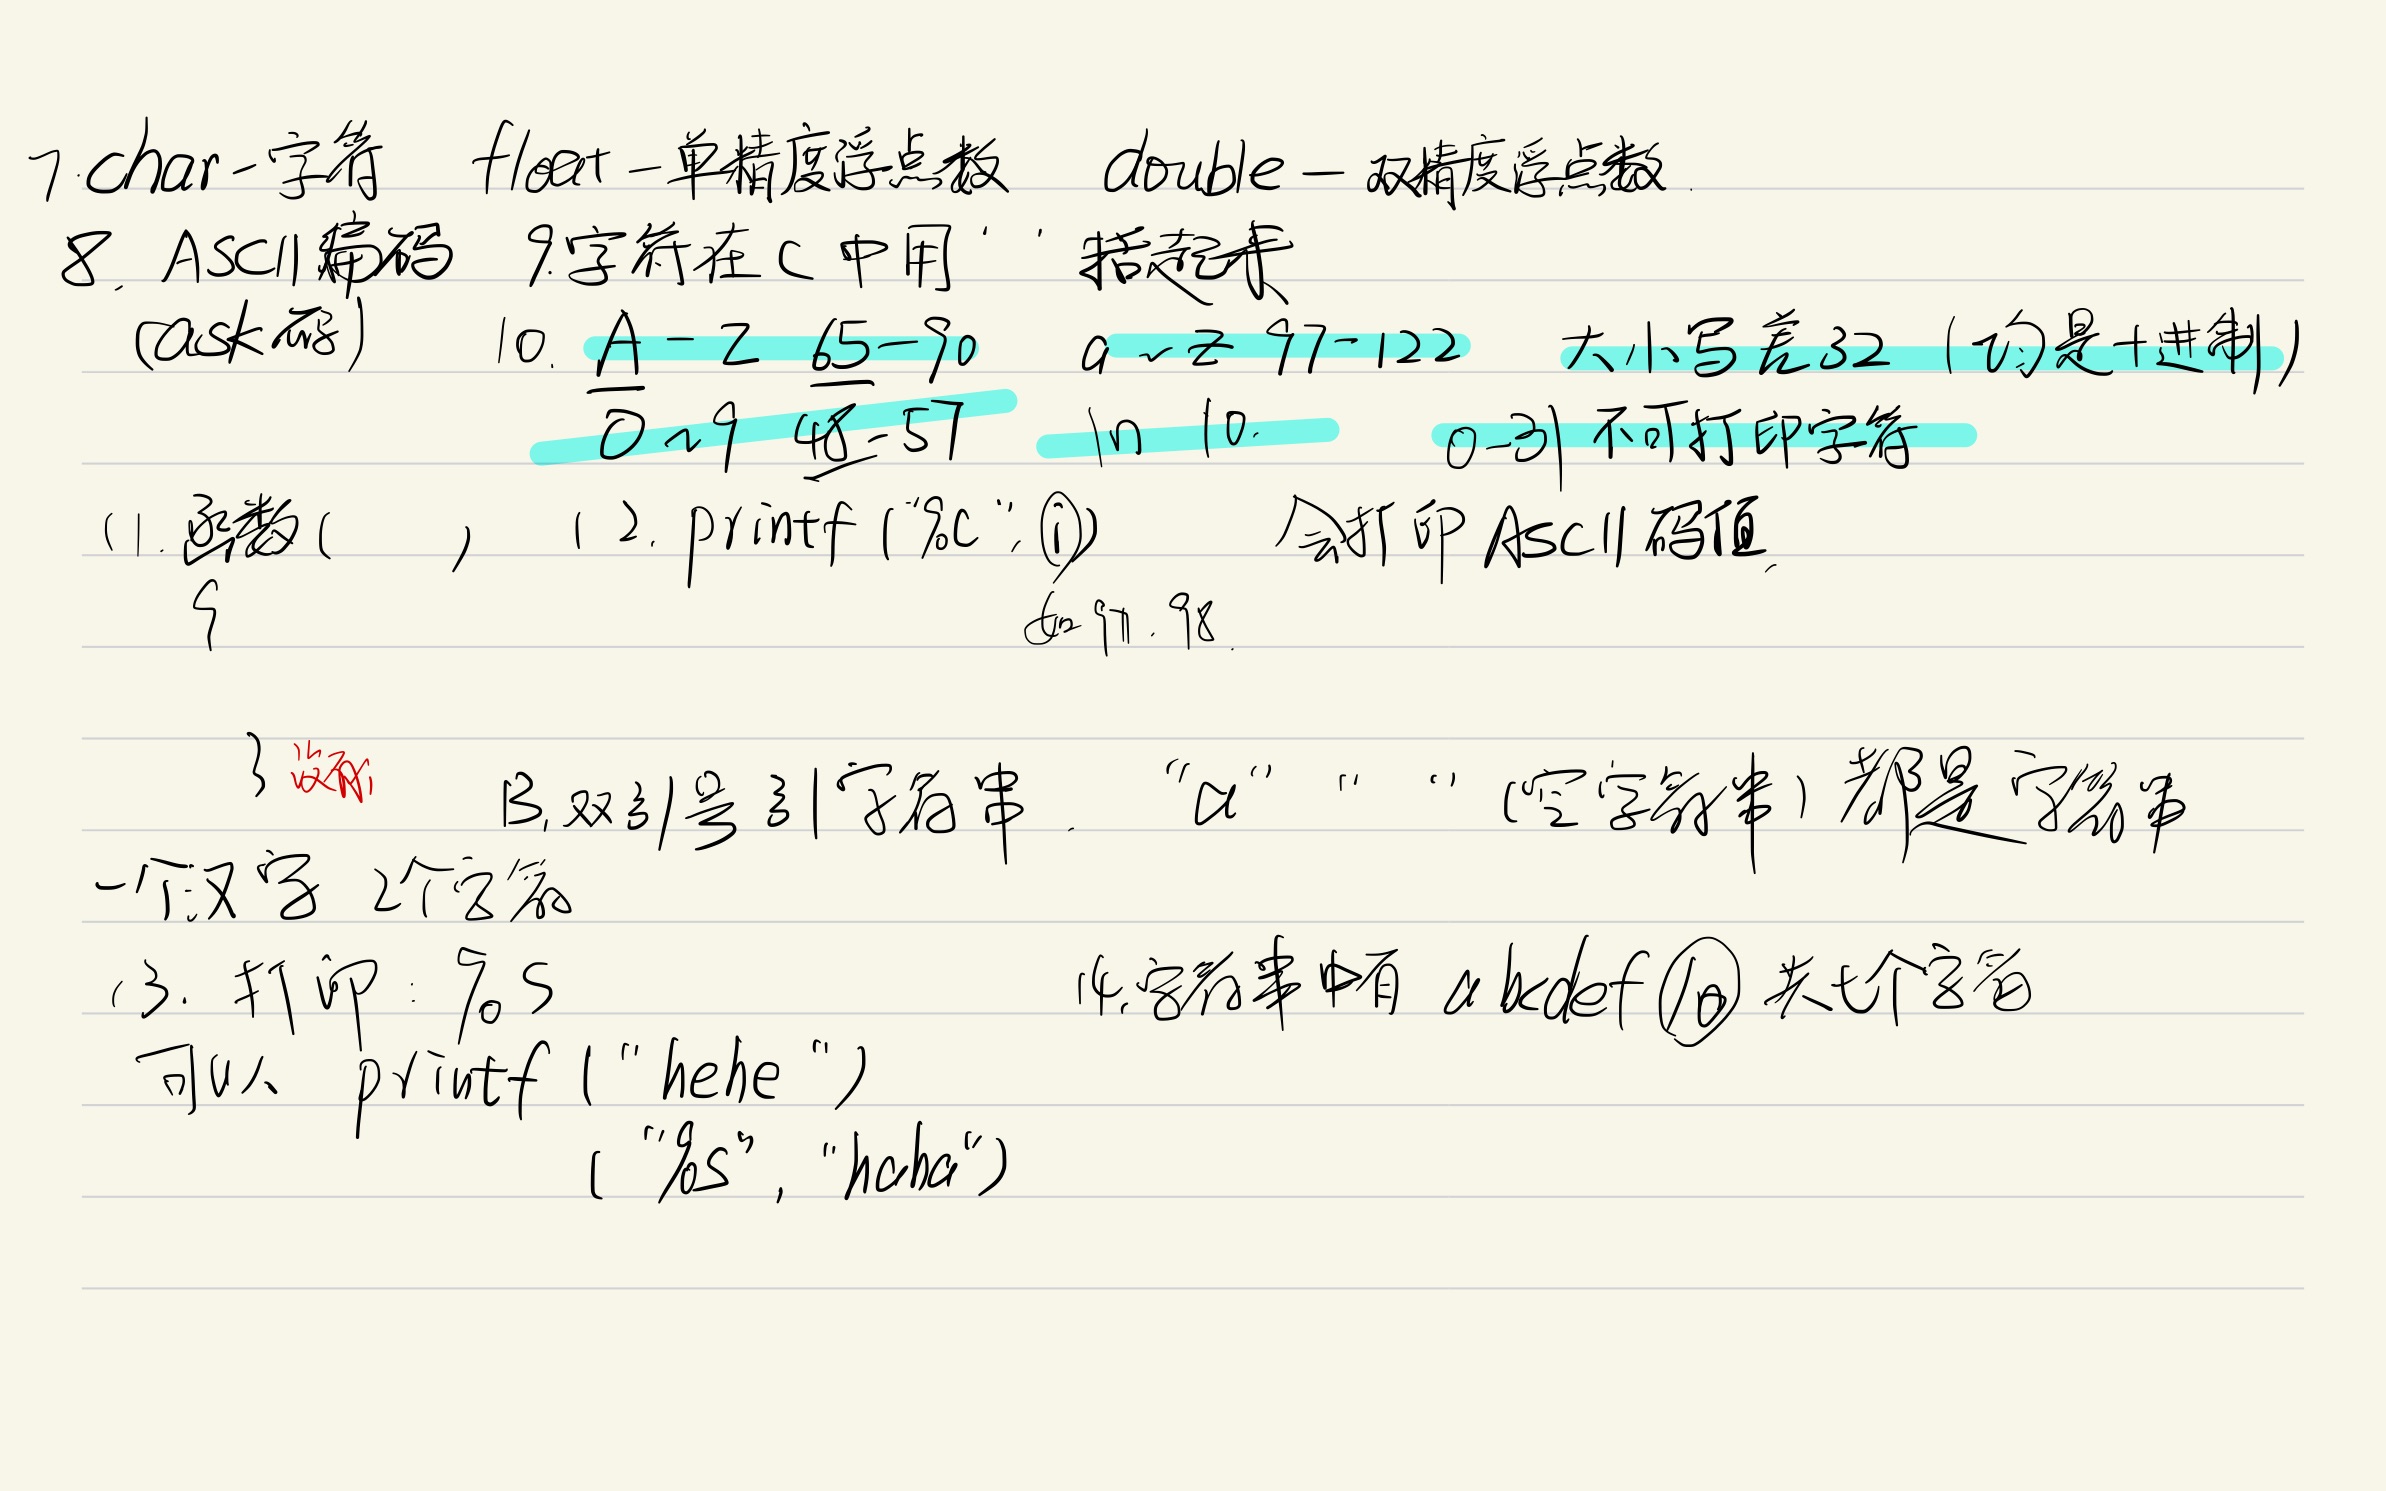 7. char-字符 float-单精度浮点数 double-双精度浮点数.
8. ASCII编码 9.字符在C中用' '括起来
(ask码) 10. A-Z 65-90 a~z 97-122 大小写差32 (均是十进制)
0~9 48-57 \n 10. 0-31不可打印字符
11.函数( ) 12. printf("%c", i) 会打印ASCII码值.
{ 如97.98.
} 没有;
13.双引号引字符串. "a" " " (空字符串)都是字符串
一个汉字 2个字符
13. 打印: %s 14.字符串中有 abcdef \0 共七个字符
可以 printf("hehe")
("%s", "haha")